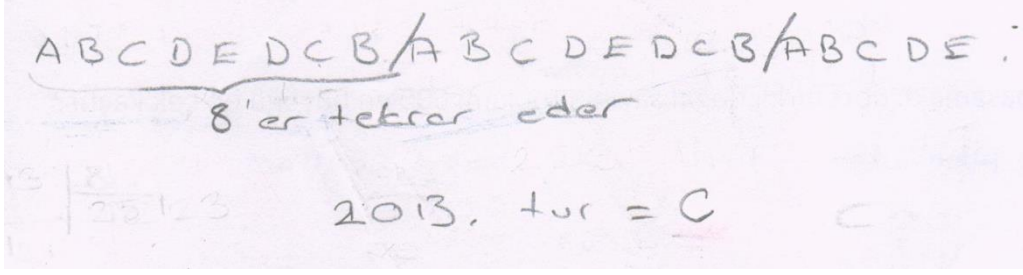 A B C D E D C B / A B C D E D C B / A B C D E .
8'er tekrar eder
2013. tur = C